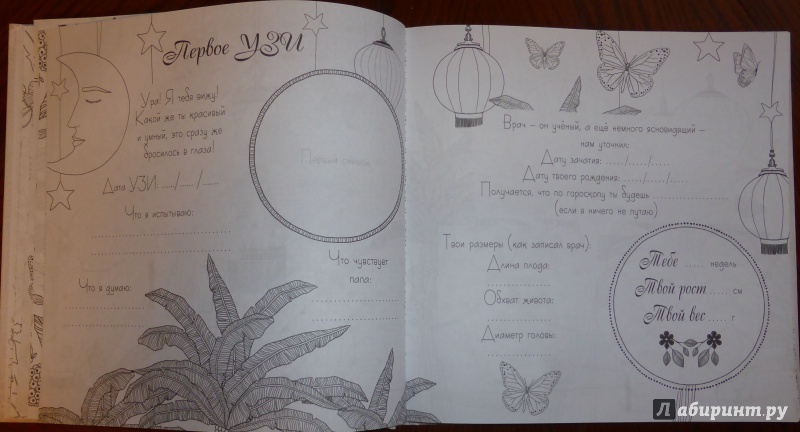 Первое УЗИ
Ура! Я тебя вижу!
Какой же ты красивый
и умный, это сразу же
бросилось в глаза!
Дата УЗИ: ...../...../.....
Что я испытываю:
Что я думаю:
Первый снимок
Что чувствует
папа:
Врач – он учёный, а ещё немного ясновидящий –
нам уточнил:
Дату зачатия: ...../...../.....
Дату твоего рождения: ...../...../.....
Получается, что по гороскопу ты будешь ..............
(если я ничего не путаю)
Твои размеры (как записал врач):
Длина плода:
Обхват живота:
Диаметр головы:
Тебе ..... недель
Твой рост ..... см
Твой вес ..... г
Лабиринт.ру